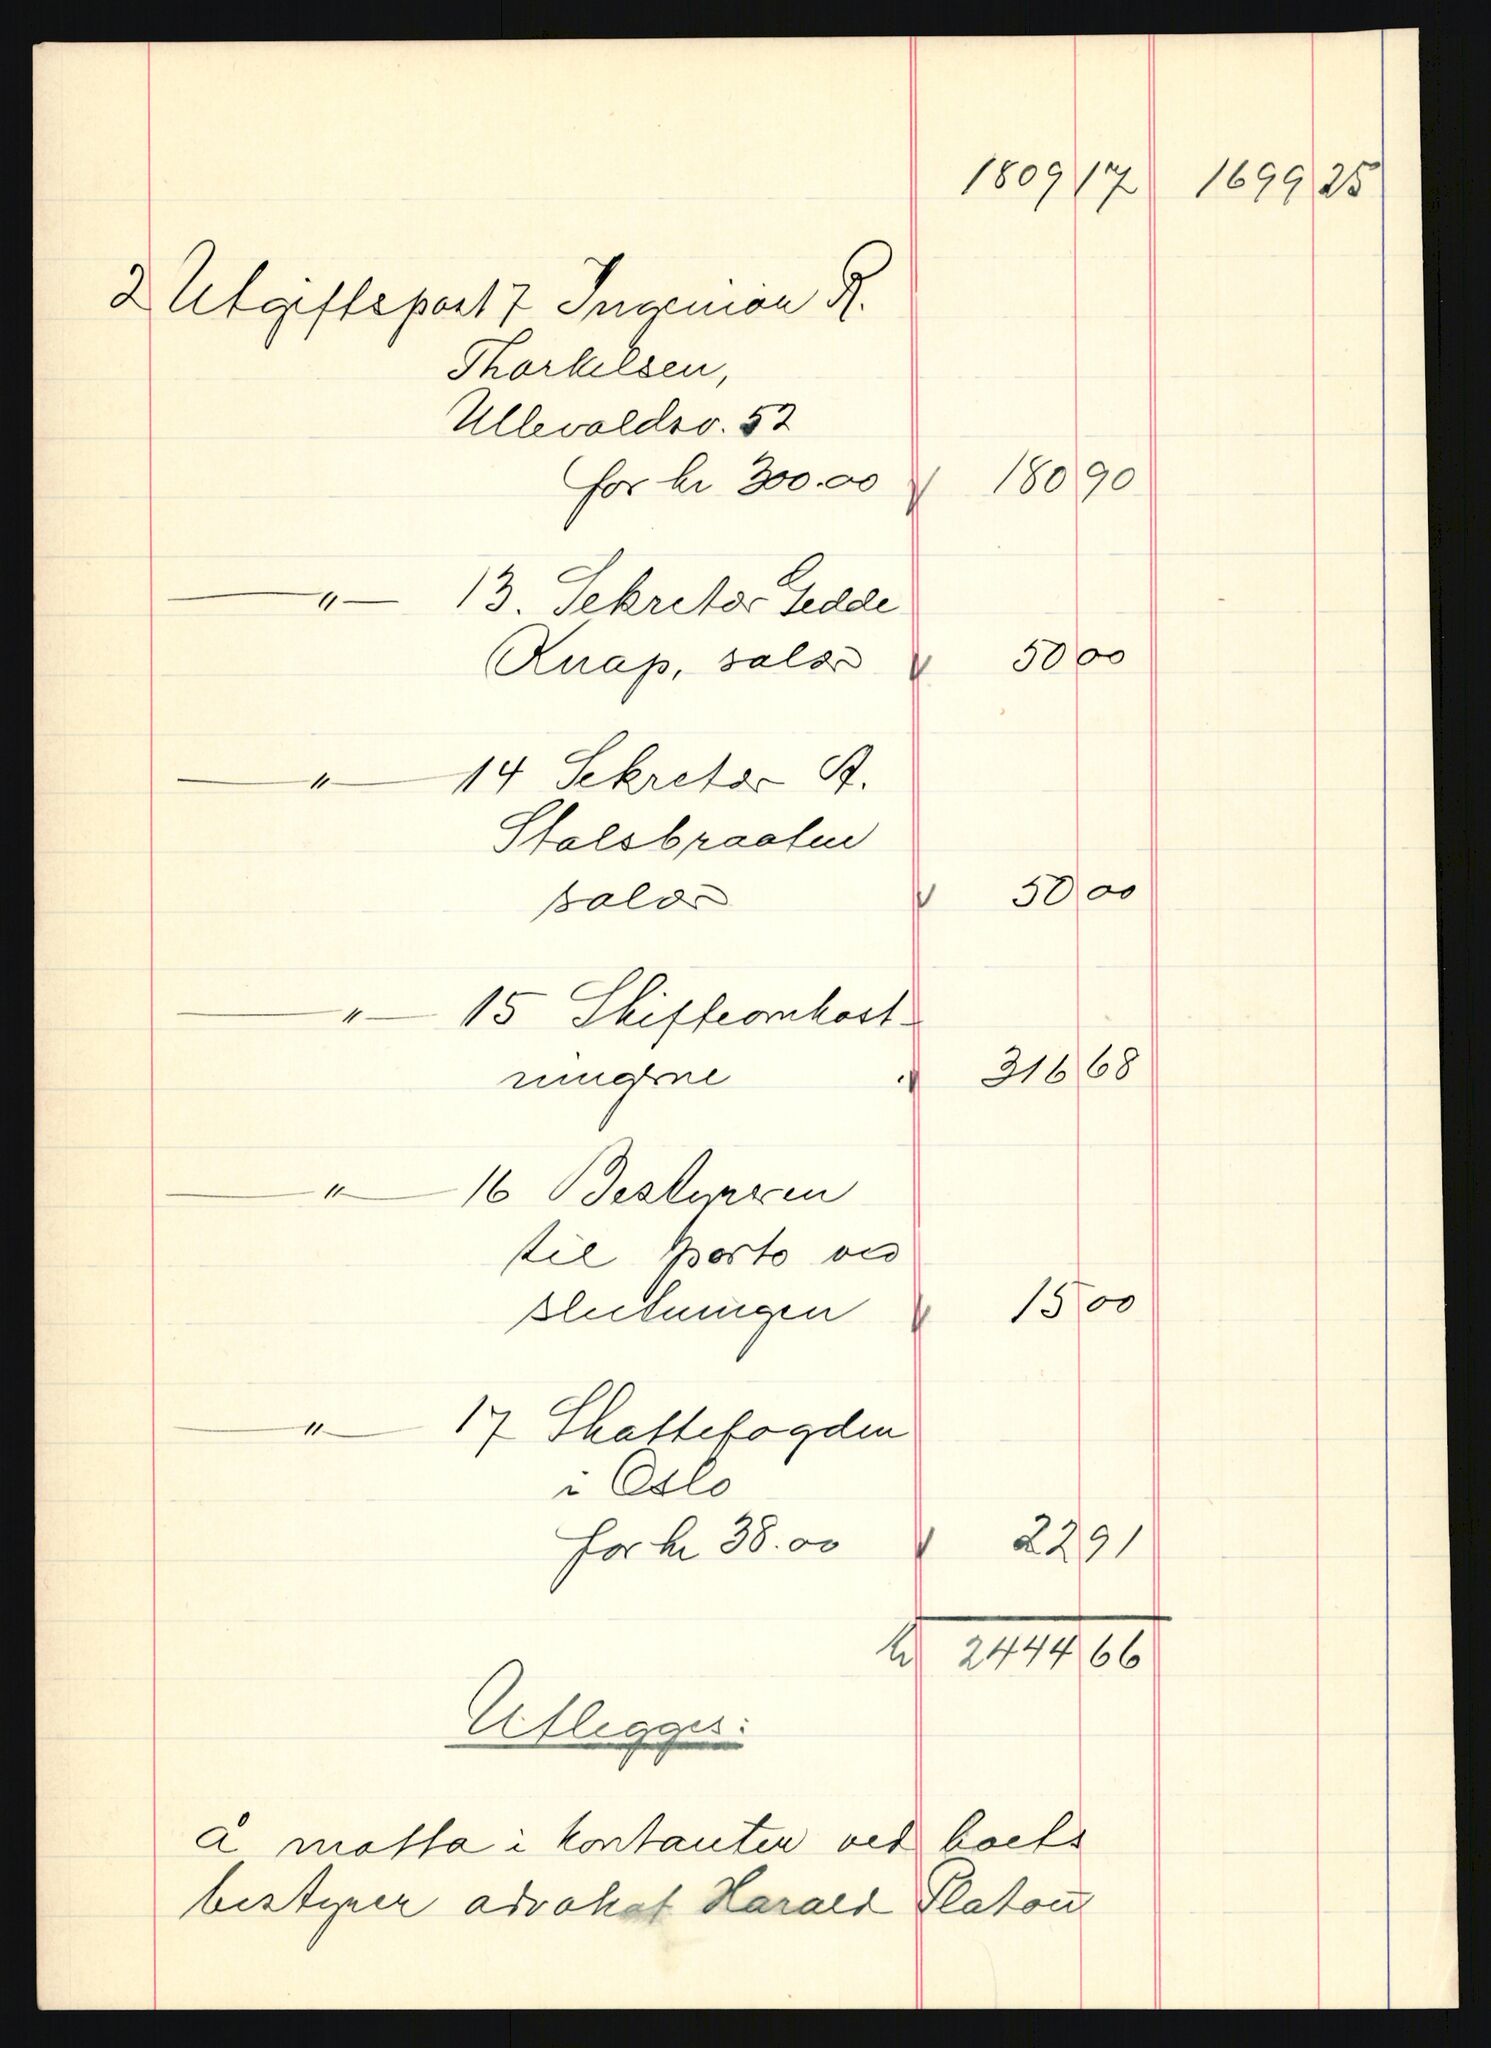 1809 17 1699 25
2 Utgiftspost 7 Ingeniør R.
Thorkelsen,
Ullevoldsv. 52
for kr 300.00 v 180 90
—"— 13. Sekretær Gedde
Knap, salær v 50 00
—"— 14 Sekretær A.
Stalsbraaten
salær v 50 00
—"— 15 Skifteomkost-
ningerne v 316 68
—"— 16 Bestyreren
til porto ved
slutningen v 15 00
—"— 17 Skattefogden
i Oslo
for kr 38.00 v 22 91
kr 2444 66
Utlegges:
å motta i kontanter ved boets
bestyrer advokat Harald Platou